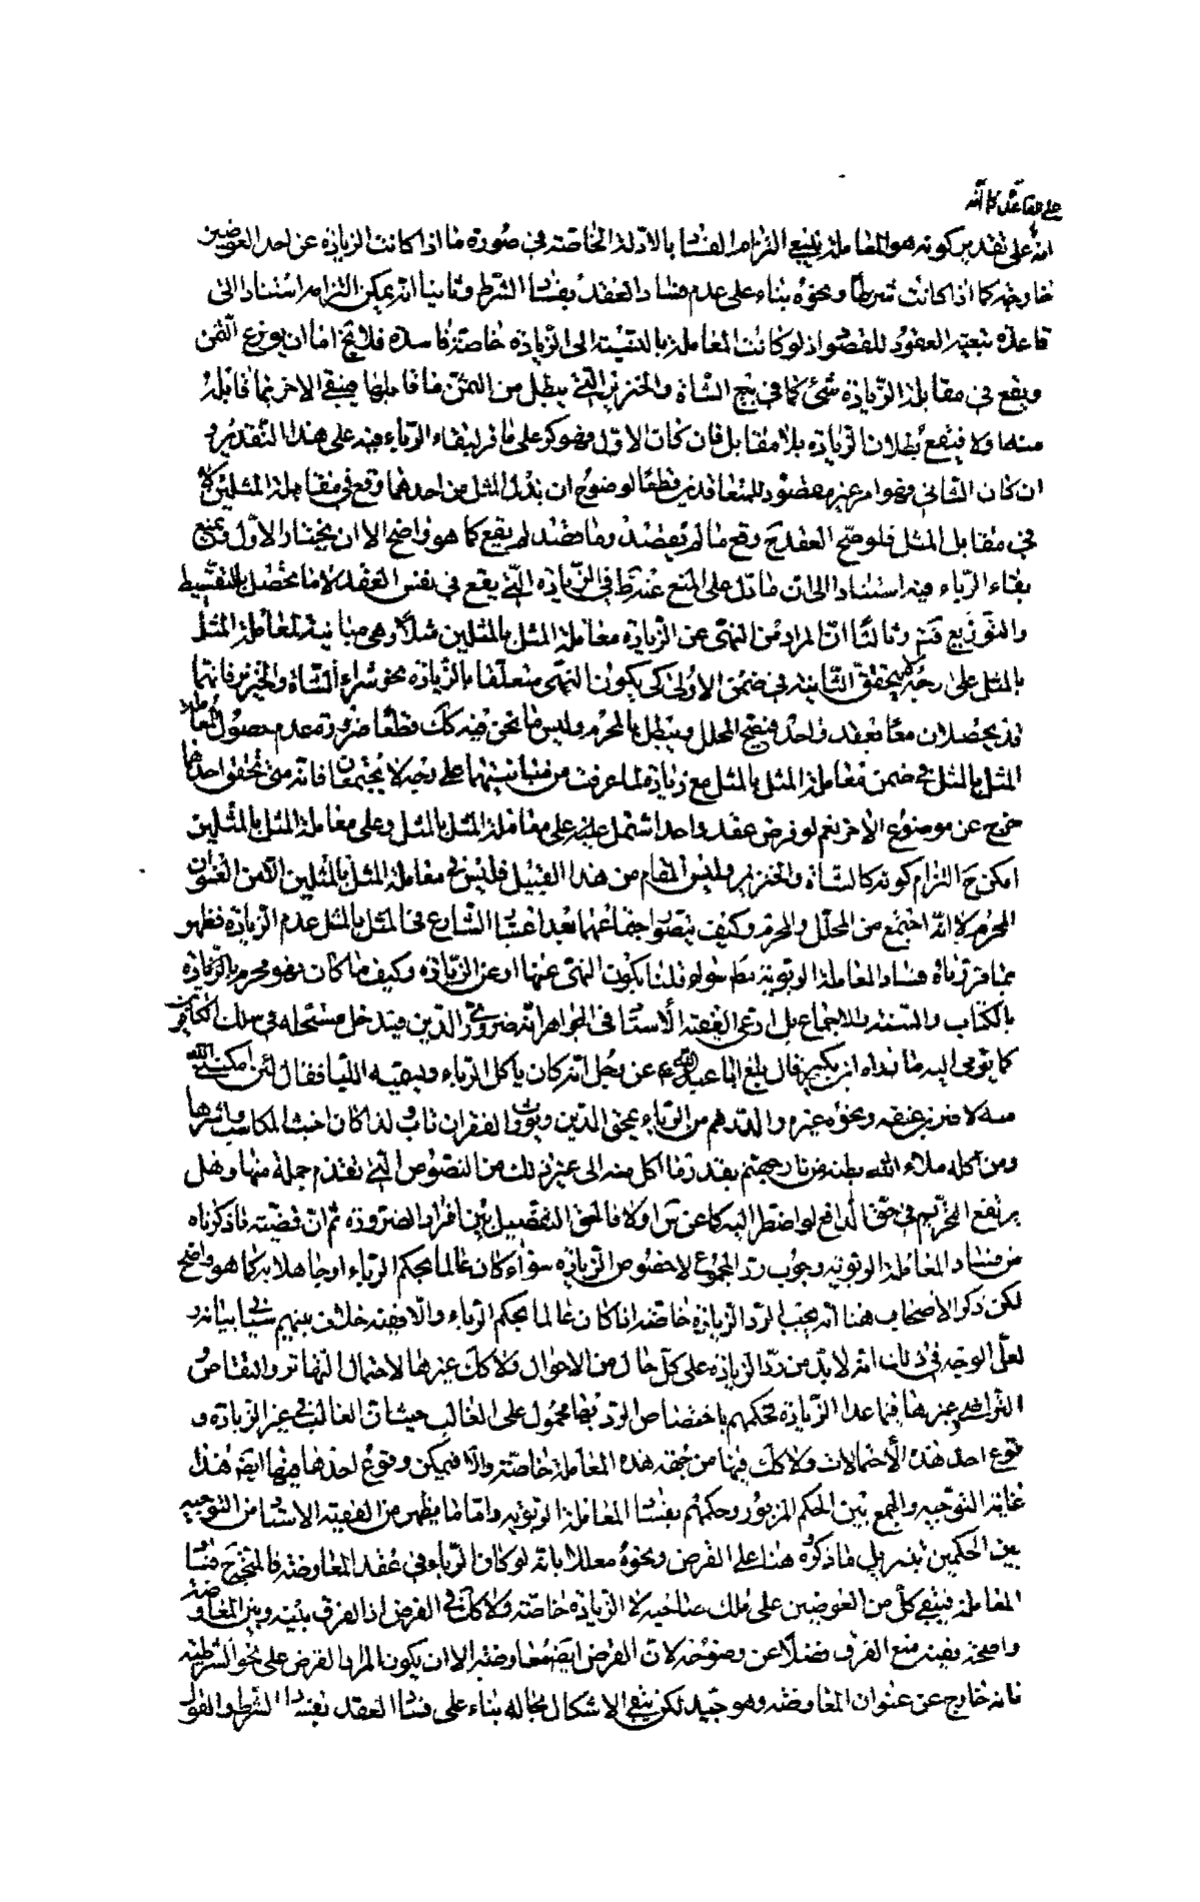 انه على تقدير كونه هو المعاملة يمنع التزام الفساد بالادلة الخاصة في صورة ما اذا كانت الزيادة عن احد العوضين
خارجة كما اذا كانت شرطاً ونحوه بناء على عدم فساد العقد بفساد الشرط وثانيا انه يمكن التزامه استنادا الى
قاعدة تبعية العقود للقصود اذ لو كانت المعاملة بالنسبة الى الزيادة خاصة فاسدة فلا يخ اما ان يوزع الثمن
ويقع في مقابلة الزيادة شئ كما في بيع الشاة والخنزير التي يبطل من الثمن ما قابلها فيبقى الاخر بما قابله
منه او لا فيقع بطلان الزيادة بلا مقابل فان كان الاول فهو كر على ما فر لبقاء الرباء فيه على هذا التقدير و
ان كان الثاني فهو امر غير مقصود للمتعاقدين قطعا لوضوح ان بذل المثل من احدهما وقع في مقابلة المثلين لا
في مقابل المثل فلو صح العقد ح وقع ما لم يقصد وما قصد لم يقع كما هو واضح الا ان يختار الاول ويمنع
بقاء الرباء فيه استنادا الى ان ما دل على المنع عنه في الزيادة التي يقع في نفس العقد لا ما يحصل بالتقسيط
والتوزيع فتم وثالثا ان المراد من النهى عن الزيادة معاملة المثل بالمثلين مثلا وهي مباينة لمعاملة المثل
بالمثل على وجه لا يتحقق الثانية في ضمن الاولى كى يكون النهى متعلقا بالزيادة نحو شراء الشاة والخنزير فانهما
قد يحصلان معا بعقد واحد فيصح المحلل ويبطل المحرم وليس ما نحن فيه كك قطعا ضرورة عدم حصول معاملة
المثل بالمثل في ضمن معاملة المثل بالمثل مع زيادة لما عرفت من مباينتهما على وجه لا يجتمعان فانه متى تحقق احدهما
خرج عن موضوع الاخر نعم لو فرض عقد واحد اشتمل عليه على معاملة المثل بالمثل وعلى معاملة المثل بالمثلين
امكن ح التزام كونه كالشاة والخنزير وليس المقام من هذا القبيل فليس في معاملة المثل بالمثلين الا من العنوان
المحرم لا انه اجتمع من المحلل والمحرم وكيف يتصور اجتماعهما بعد اعتبار الشارع في المثل بالمثل عدم الزيادة فظهر
مما قررناه فساد المعاملة الربوية سواء قلنا بكون النهى عنها او عن الزيادة وكيف ما كان فهو محرم بالزيادة
بالكتاب والسنة والاجماع بل ادعى الفقيه الأستاد في الجواهر انه ضرورى الدين فيدخل مستحله في سلك الكافرين
كما يومى اليه ما رواه ابن بكير قال بلغ ابا عبد الله ع عن رجل انه كان ياكل الرباء ويسميه اللبا فقال لئن امكننى الله
منه لاضربن عنقه ونحوه غيره والدرهم من الرباء يمحق الدين ويورث الفقر ان تاب ولذا كان اخبث المكاسب واشرها
ومن اكله ملاء الله بطنه من نار جهنم بقدر ما اكل منه الى غير ذلك من النصوص التي تقدم جملة منها وهل
يرتفع التحريم في حق الدافع لو اضطر اليه كما عن س او لا فالحق التفصيل بين افراد الضرورة ثم ان قضية ما ذكرناه
من فساد المعاملة الربوية وجوب رد المجموع لا خصوص الزيادة سواء كان عالما بحكم الرباء او جاهلا به كما هو واضح
لكن ذكر الاصحاب هنا انه يجب الرد الزيادة خاصة اذا كان عالما بحكم الرباء والا ففيه خلاف بينهم سيأتى بيانه و
لعل الوجه في ذلك انه لا بد من رد الزيادة على كل حال من الاحوال ولا كك غيرها لاحتمال التهاتر والتقاص و
التراضى بغيرها فيما عدا الزيادة فحكمهم باختصاص الرد بها محمول على الغالب حيث ان الغالب في غير الزيادة و
قوع احد هذه الاحتمالات ولا كك فيها من جهة هذه المعاملة خاصة والا فيمكن وقوع احدها فيها ايضا هذا
غاية التوجيه والجمع بين الحكم المزبور وحكمهم بفساد المعاملة الربوية واما ما يظهر من الفقيه الاستاد من التوجيه
بين الحكمين بتنزيل ما ذكروه هنا على القرض ونحوه معللا بانه لو كان الرباء في عقد المعاوضة فالمتجه ح فساد
المعاملة فيبقى كل من العوضين على ملك صاحبه لا الزيادة خاصة ولا كك في القرض اذ الفرق بينه وبين المعاوضة
واضحة ففيه منع الفرق فضلا عن وضوحه لان القرض ايضا معاوضة الا ان يكون المراد القرض على نحو الشرطية
فانه خارج عن عنوان المعاوضة وهو جيد لكن يبقى الاشكال بحاله بناء على فساد العقد بفساد الشرط والقول